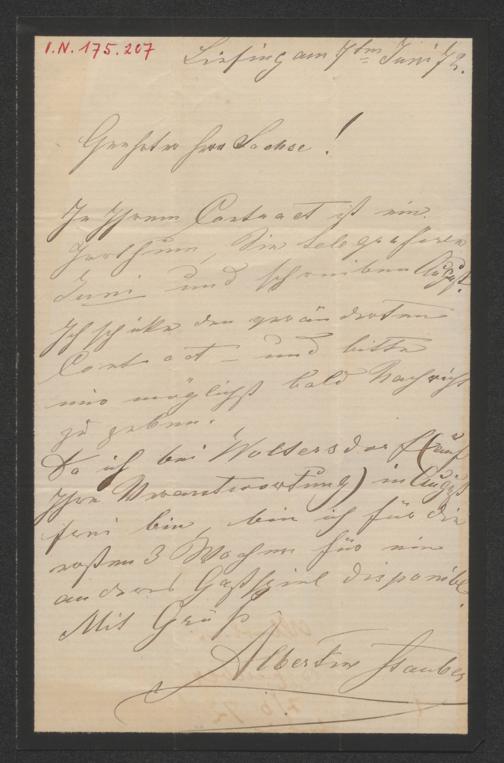 I.N. 175.207
Liesing am 7ten Juni 72.
Geehrter Herr Sachse!
In Ihrem Contract ist ein
Irrthum, Sie telegrafiren
Juni und schreiben August.
Ich schicke den geänderten
Contract – und bitte
mir möglichst bald Nachricht
zu geben.
Da ich bei Woltersdorf (auf
Ihre Verantwortung) im August
frei bin, bin ich für die
ersten 3 Wochen für ein
anderes Gastspiel disponibel.
Mit Gruß
Albertine Stauber